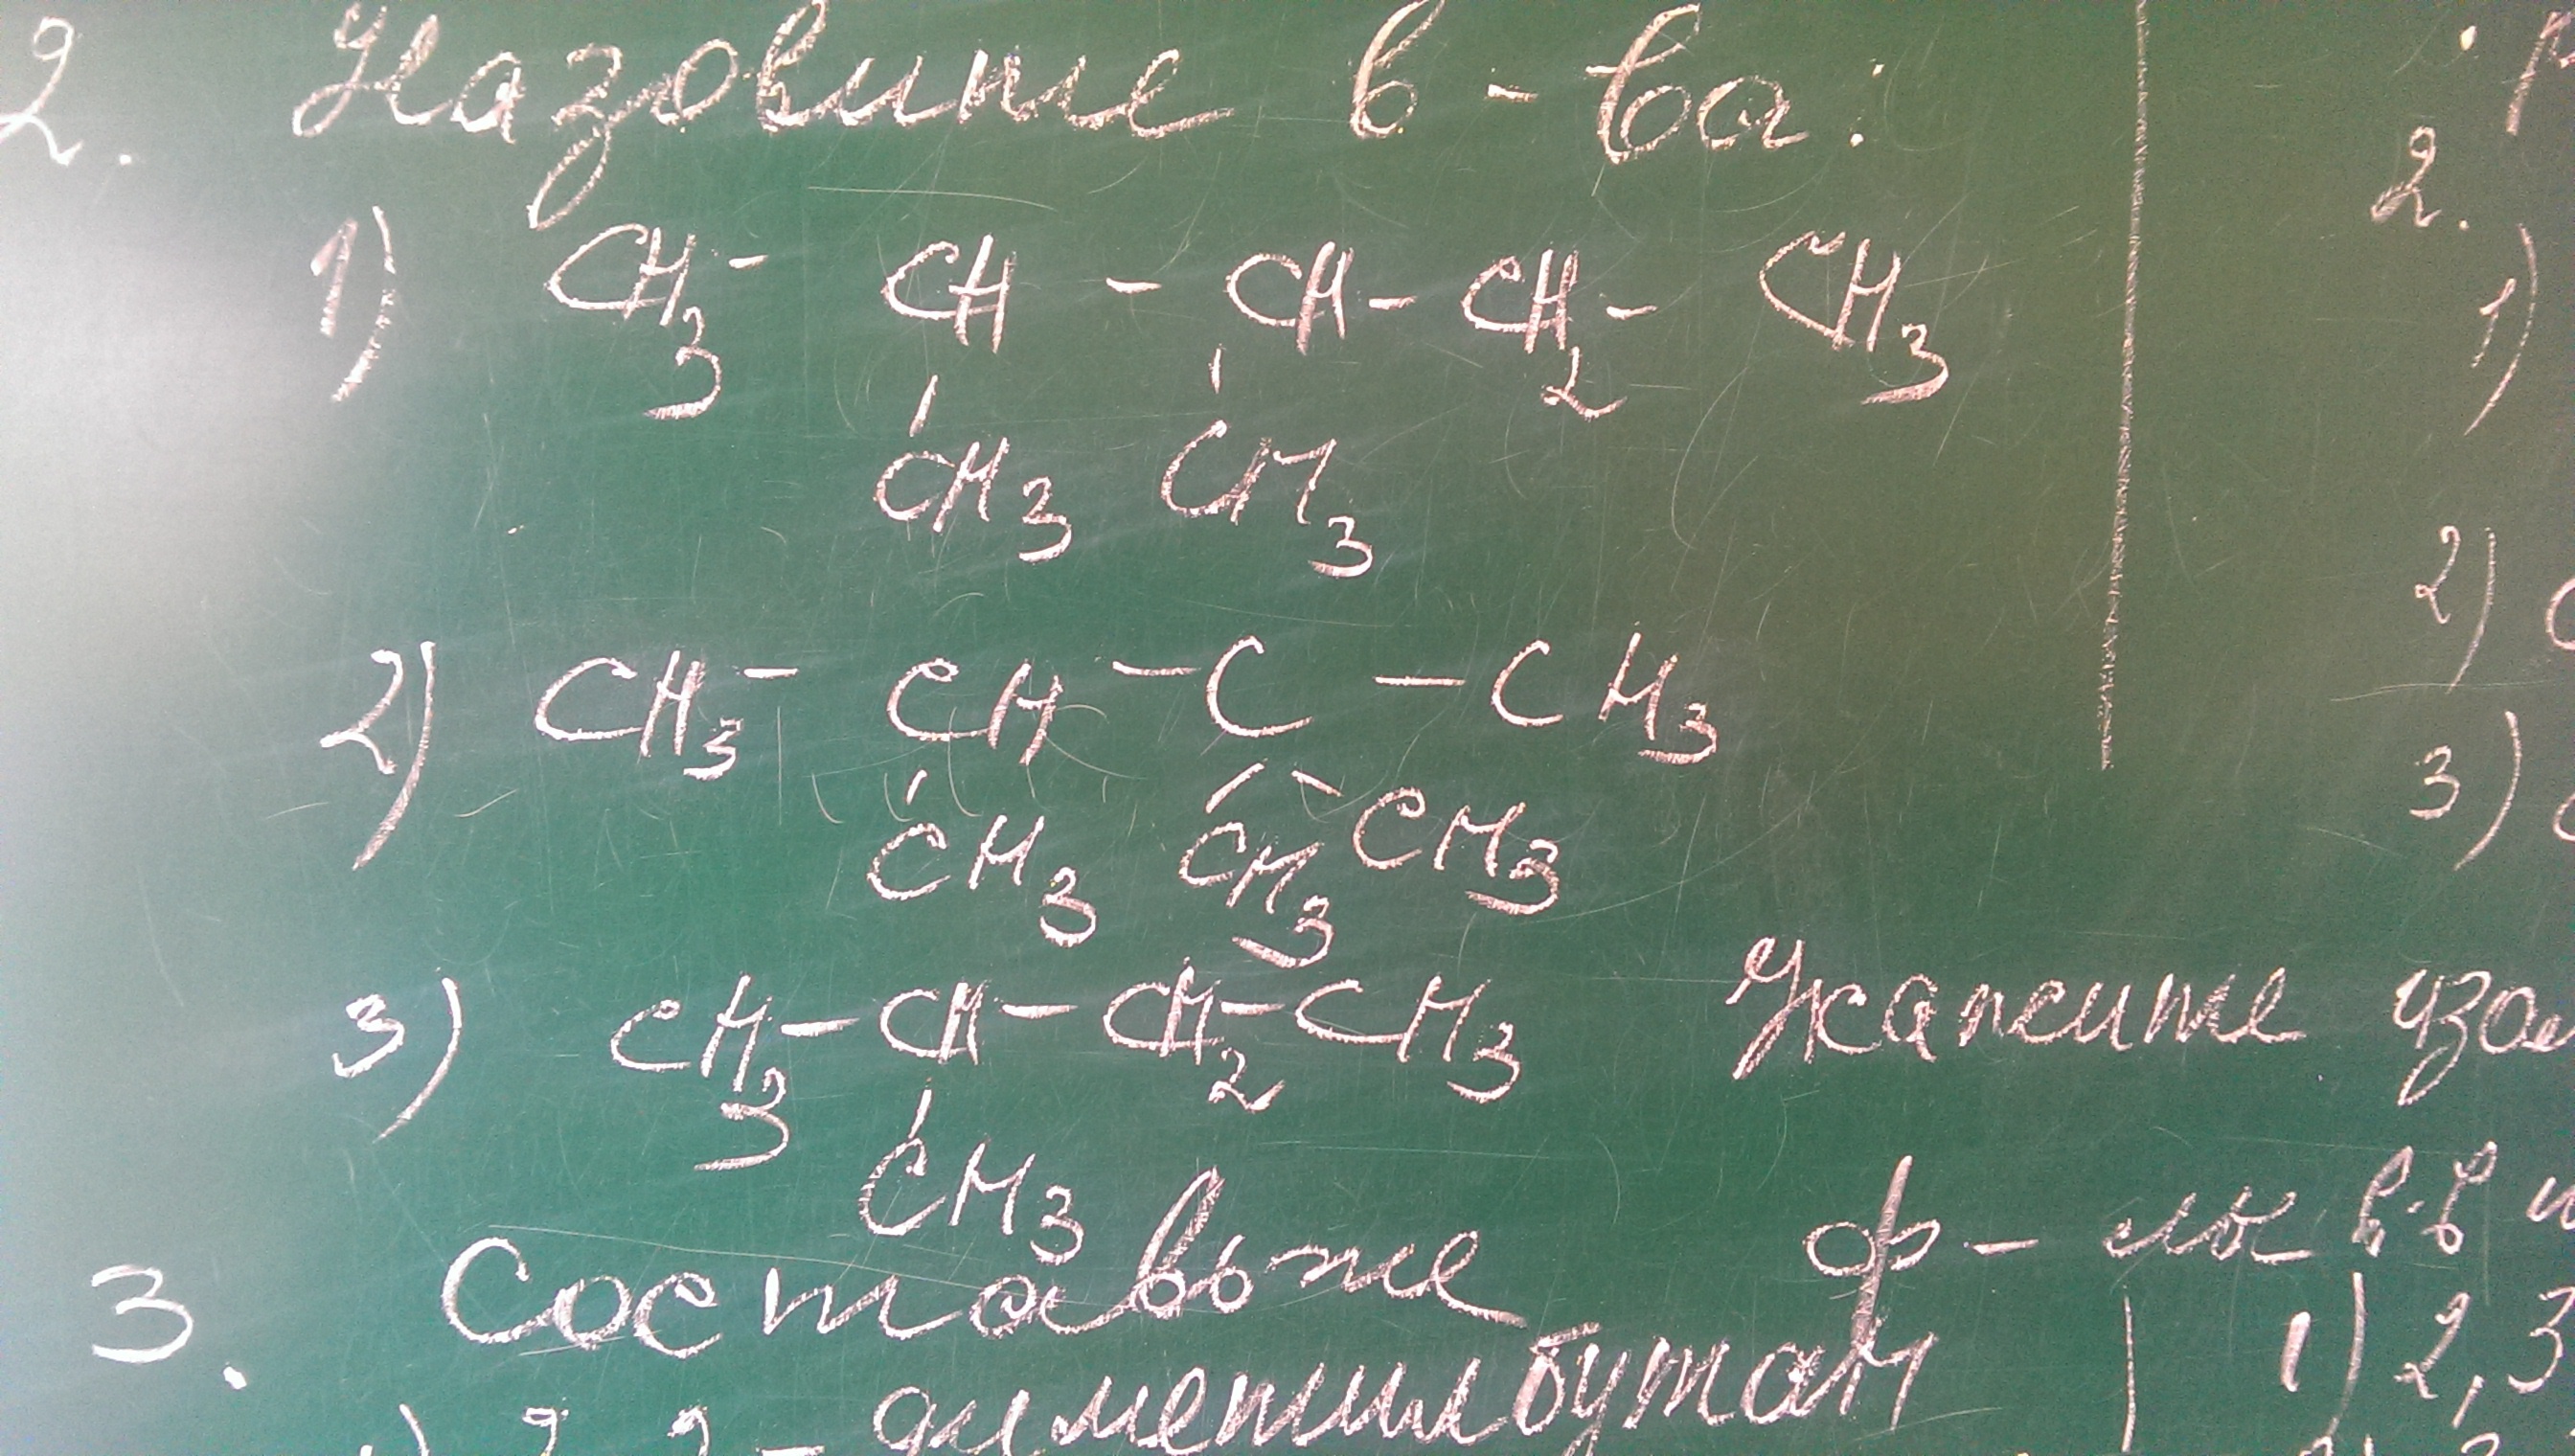 2. Назовите в-ва:
1) CH3 - CH - CH - CH2 - CH3
CH3 CH3
2) CH3 - CH - C - CH3
CH3 CH3 CH3
3) CH3 - CH - CH2 - CH3
CH3
Укажите изо
3. Составьте ф-лы в-в
диметилбутан
1) 2,3
2.
1)
2)
3)